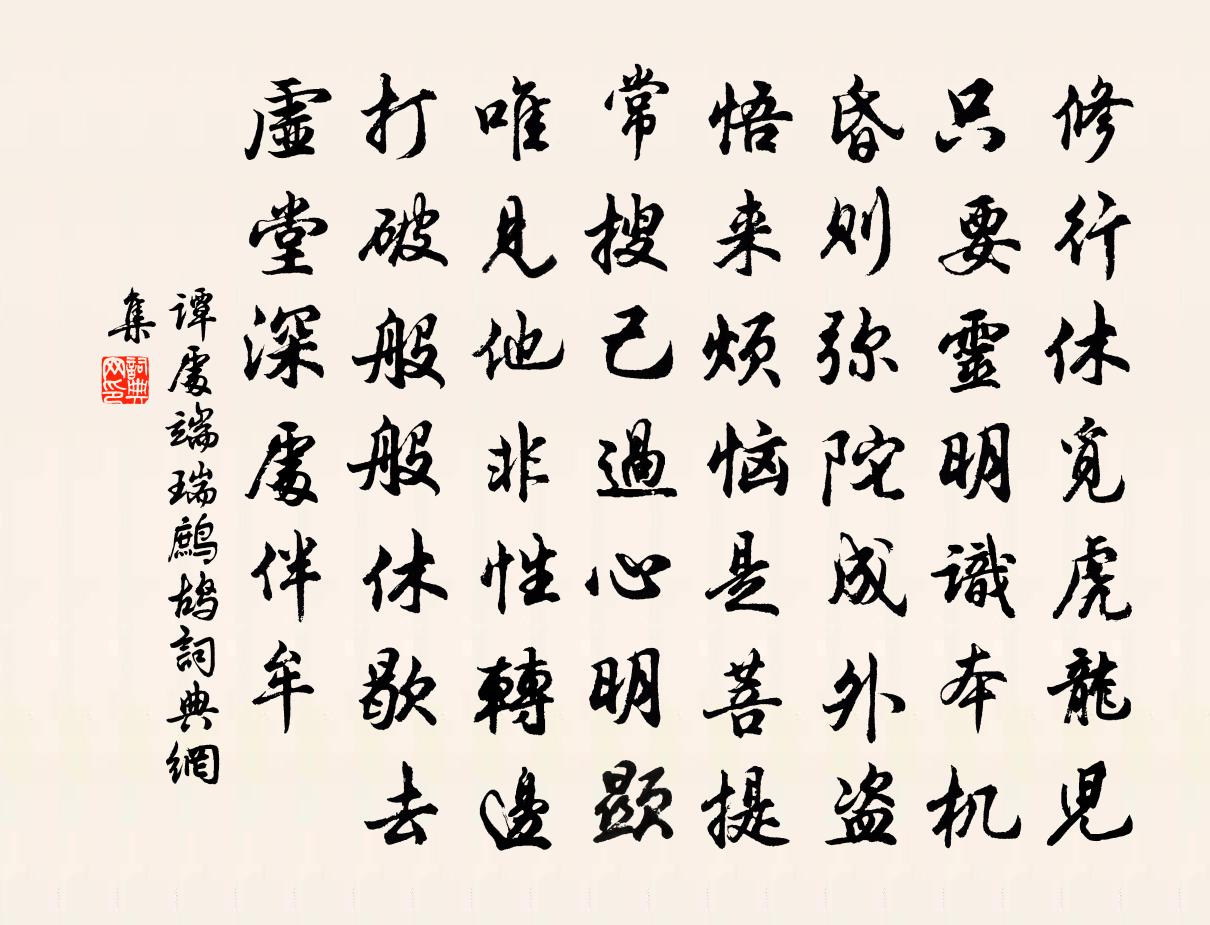 修行休覓虎龍児
只要靈明識本机
昏则弥陀成外盗
悟来烦恼是菩提
常搜己過心明顯
唯見他非性轉邊
打破般般休歇去
虛堂深處伴牟
譚處端瑞鷓鴣詞典網
集
詞典网印